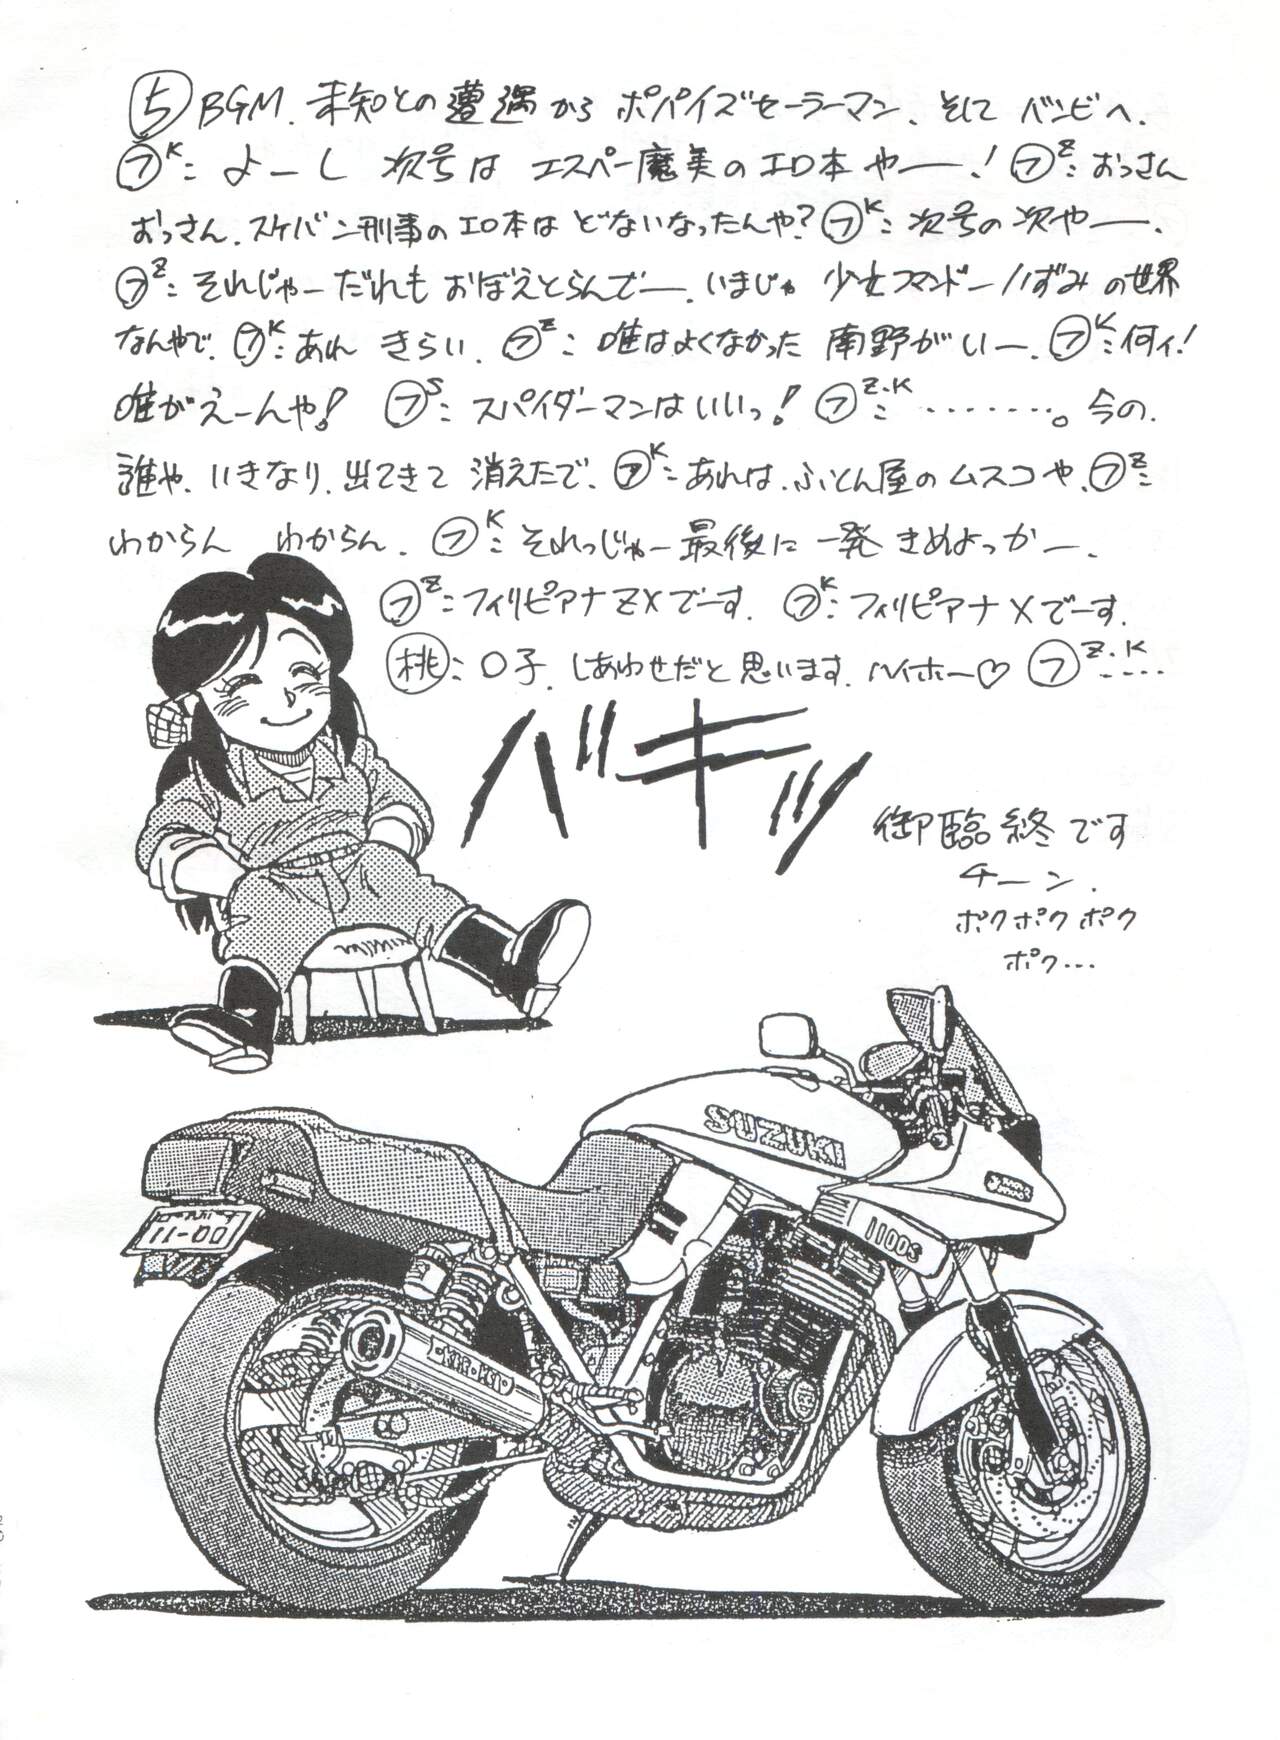 ⑤ BGM. 未知との遭遇から ポパイズセーラーマン、そして バンビへ.
㋫K: よーし 次号は エスパー魔美のエロ本やー! ㋫Z: おっさん
おっさん、スケバン刑事のエロ本は どないなったんや? ㋫K: 次号の次やー.
㋫Z: それじゃー だれも おぼえとらんでー. いまじゃ 少女コマンドーいずみの世界
なんやで. ㋫K: あれ きらい. ㋫Z: 唯はよくなかった 南野がいー. ㋫K: 何ィ!
唯がえーんや! ㋫S: スパイダーマンはいいっ! ㋫Z.K: ‥‥‥‥。今の.
誰や、いきなり、出てきて 消えたで. ㋫K: あれは、ふとん屋のムスコや、㋫Z:
わからん わからん. ㋫K: それっじゃー最後に 一発 きめよっかー.
㋫Z: フィリピアナZXでーす. ㋫K: フィリピアナXでーす.
桃: ○子、しあわせだと思います. ハイホー♡ ㋫Z.K‥‥
バキッ
御臨終です
チーン.
ポクポクポク
ポク…
SUZUKI
1100S
11-00